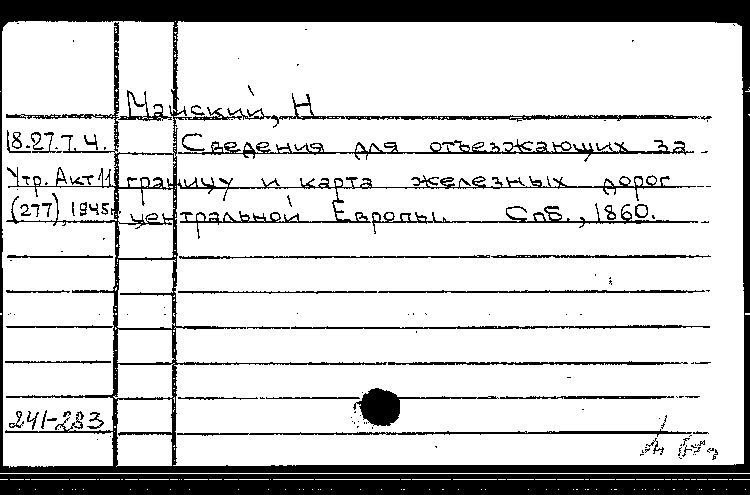 Майский, Н
18.27.7.4. Сведения для отъезжающих за
Утр. Акт 11 границу и карта железных дорог
(277), 1945г. центральной Европы. Спб., 1860.
241-283